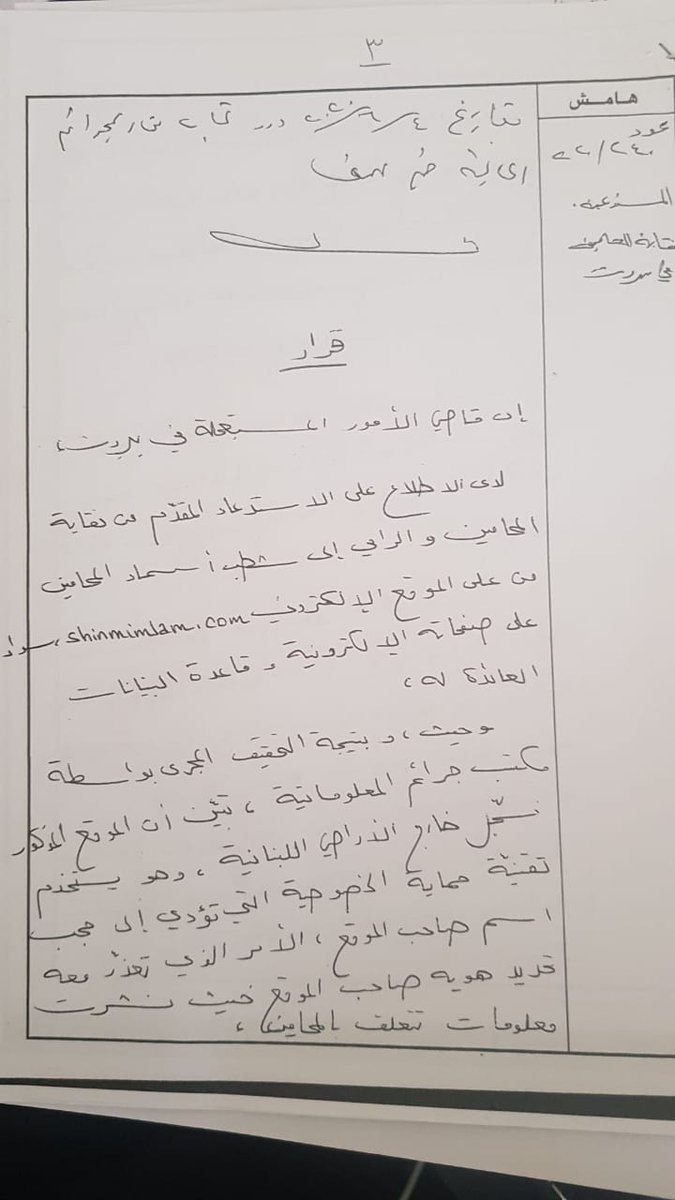 ٣
هامش
بتاريخ ورد كتاب من
المستدعية.
نقابة المحامين
في بيروت
قرار
إن قاضي الأمور المستعجلة في بيروت،
لدى الاطلاع على الاستدعاء المقدّم من نقابة
المحامين والرامي إلى شطب أسماء المحامين
من على الموقع الإلكتروني shinmimlam.com، سواء
على صفحاته الإلكترونية وقاعدة البيانات
العائدة له،
وحيث، وبنتيجة التحقيق المجرى بواسطة
مكتب جرائم المعلوماتية، تبيّن أن الموقع المذكور
مسجّل خارج الأراضي اللبنانية، وهو يستخدم
تقنيّة حماية الخصوصية التي تؤدي إلى حجب
اسم صاحب الموقع، الأمر الذي تعذّر معه
تحديد هوية صاحب الموقع حيث نشرت
معلومات تتعلق بالمحامين،